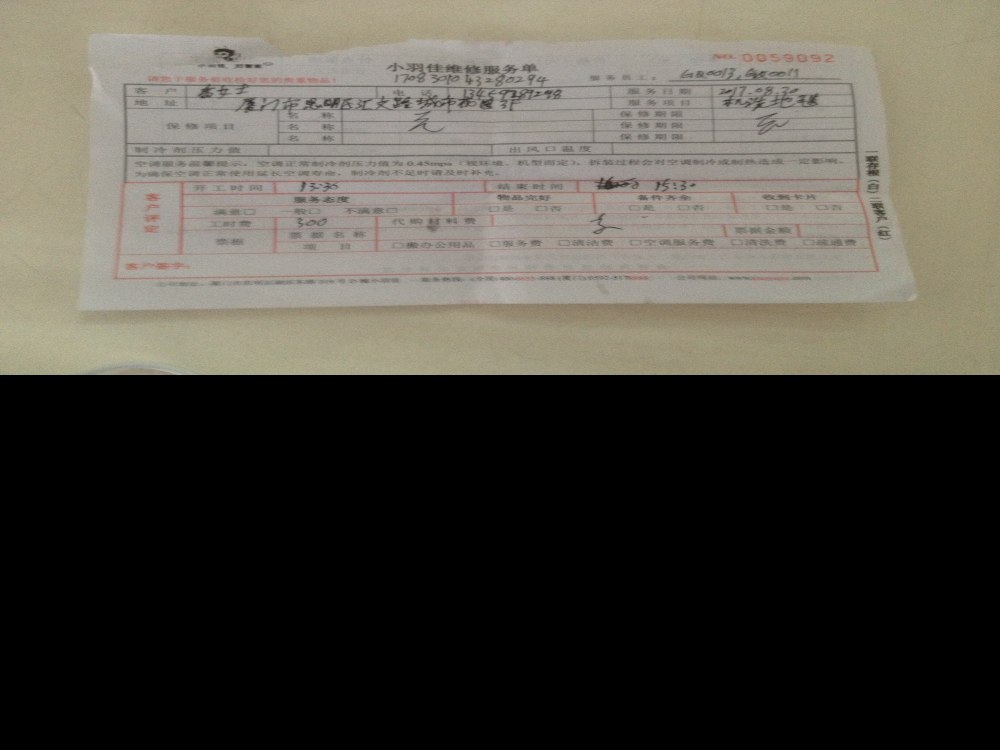 NO. 0059092
小羽佳维修服务单
请您于服务前收检好您的贵重物品！
17083010143280294
服务员工： GX0013, GX0011
客户 电话 13459289298 服务日期 2017.08.30
地址 服务项目 机洗地毯
保修项目 名称 无 保修期限 无
名称 保修期限
名称 保修期限
制冷剂压力值 出风口温度
空调服务温馨提示：空调正常制冷剂压力值为0.45mpa（视环境、机型而定），拆装过程会对空调制冷或制热造成一定影响，
为确保空调正常使用延长空调寿命，制冷剂不足时请及时补充。
客户评定 开工时间 13:30 结束时间 15:30
服务态度 物品完好 备件齐全 收到卡片
满意□ 一般□ 不满意□ □是 □否 □是 □否 □是 □否
工时费 300 代购材料费 票据金额
票据 票据名称
项目 □搬办公用品 □服务费 □清洁费 □空调服务费 □清洗费 □疏通费
客户签字：
一联存根（白）二联客户（红）